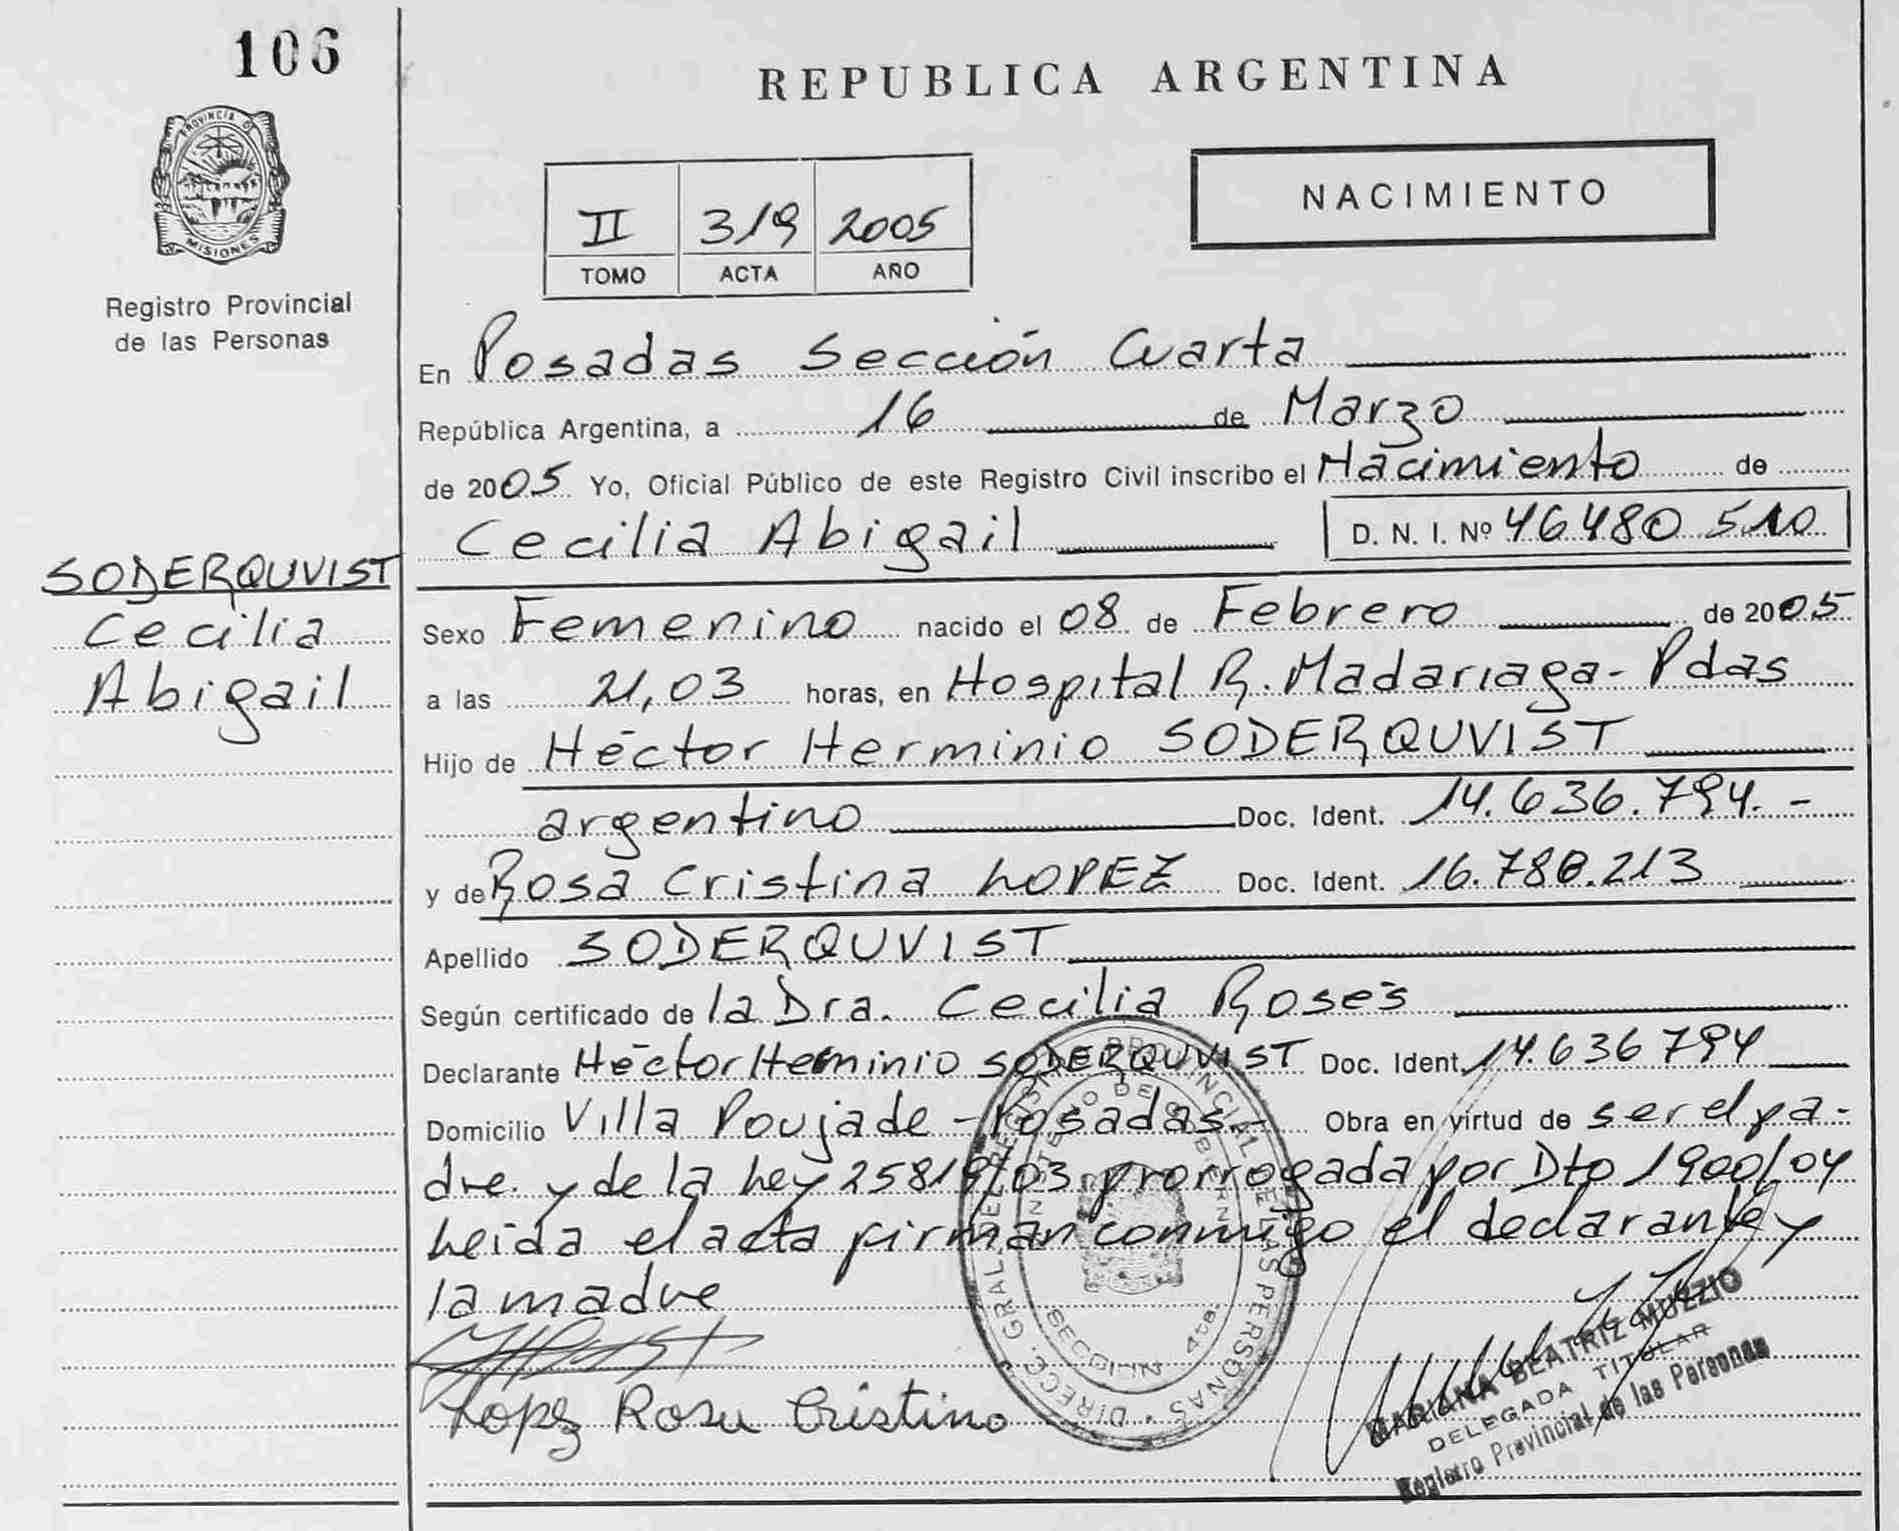 106
REPUBLICA ARGENTINA
PROVINCIA DE
MISIONES
Registro Provincial
de las Personas
NACIMIENTO
II 319 2005
TOMO ACTA AÑO
En Posadas Sección Cuarta
República Argentina, a 16 de Marzo
de 2005 Yo, Oficial Público de este Registro Civil inscribo el Nacimiento de
Cecilia Abigail D. N. I. Nº 46480 510
SODERQUVIST
Cecilia
Abigail
Sexo Femenino nacido el 08 de Febrero de 2005
a las 21,03 horas, en Hospital R. Madariaga - Pdas
Hijo de Héctor Herminio SODERQUVIST
argentino Doc. Ident. 14.636.794.-
y de Rosa Cristina LOPEZ Doc. Ident. 16.780.213
Apellido SODERQUVIST
Según certificado de la Dra. Cecilia Rosés
Declarante Héctor Herminio SODERQUVIST Doc. Ident. 14.636 794
Domicilio Villa Poujade - Posadas.- Obra en virtud de ser el pa-
dre. y de la Ley 25819/03 prorrogada por Dto 1900/04
Leida el acta firman conmigo el declarante y
la madre
Lopez Rosa Cristina
DIRECC. GRAL. DEL REGISTRO PROVINCIAL DE LAS PERSONAS
MINISTERIO DE GOBIERNO
SECCION 4ta.
MARIANA BEATRIZ MUZZIO
DELEGADA TITULAR
Registro Provincial de las Personas